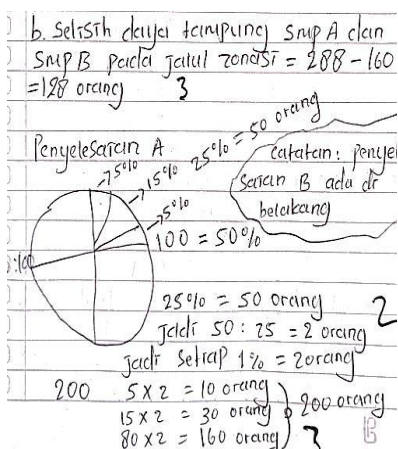 b. Selisih daya tampung SMP A dan
SMP B pada jalul zonasi = 288 - 160
= 128 orang 3
Penyelesaian A
25% = 50 orang
catatan: penyele
saian B ada di
belakang
5%
15%
5%
100 = 50%
25% = 50 orang 2
Jadi 50 : 25 = 2 orang
jadi setiap 1% = 2 orang
200 5 x 2 = 10 orang
15 x 2 = 30 orang 200 orang
80 x 2 = 160 orang 3